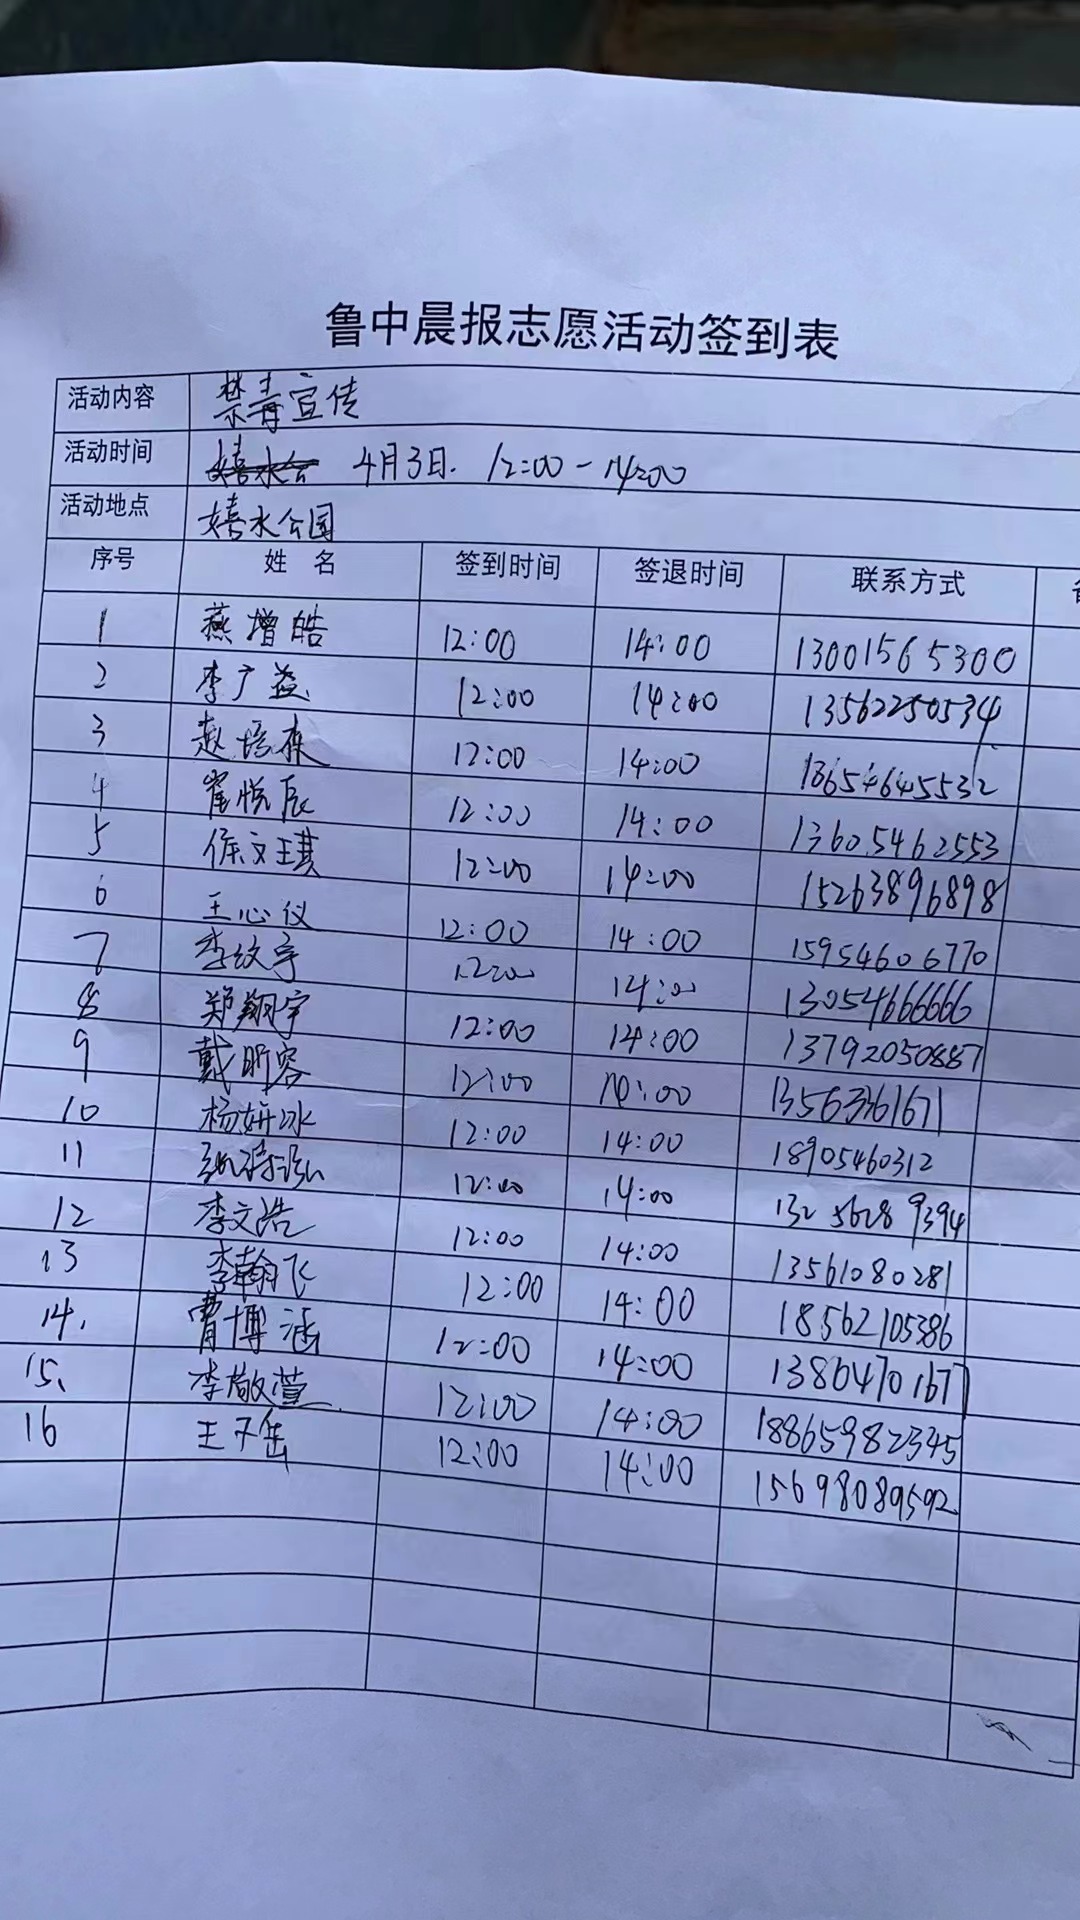 鲁中晨报志愿活动签到表
活动内容 禁毒宣传
活动时间 嬉水公 4月3日. 12:00-14:00
活动地点 嬉水公园
序号 姓 名 签到时间 签退时间 联系方式
1 燕增皓 12:00 14:00 13001565300
2 李广益 12:00 14:00 13562250534
3 赵培森 12:00 14:00 18654645532
4 翟悦辰 12:00 14:00 13605462553
5 徐文琪 12:00 14:00 15263896898
6 王心仪 12:00 14:00 15954606770
7 李纹宇 12:00 14:00 13054666666
8 郑翔宇 12:00 14:00 13792050887
9 戴昕容 12:00 14:00 13563361671
10 杨妍冰 12:00 14:00 18905460312
11 12:00 14:00 13256289394
12 李文浩 12:00 14:00 13561080281
13 李翰飞 12:00 14:00 18562105386
14. 曹博涵 12:00 14:00 13864701677
15、 李敬萱 12:00 14:00 18865982345
16 王子岳 12:00 14:00 15698089592